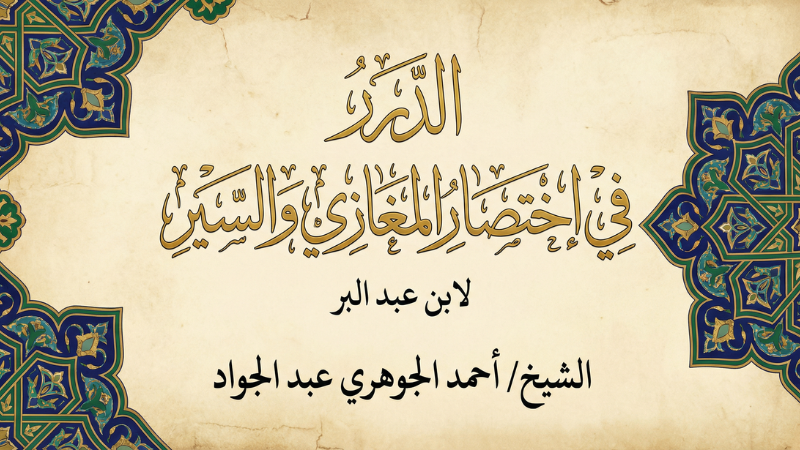 الدُّرَرُ
فِي إِخْتِصَارِ الْمَغَازِي وَالسِّيَرِ
لابن عبد البر
الشيخ/ أحمد الجوهري عبد الجواد